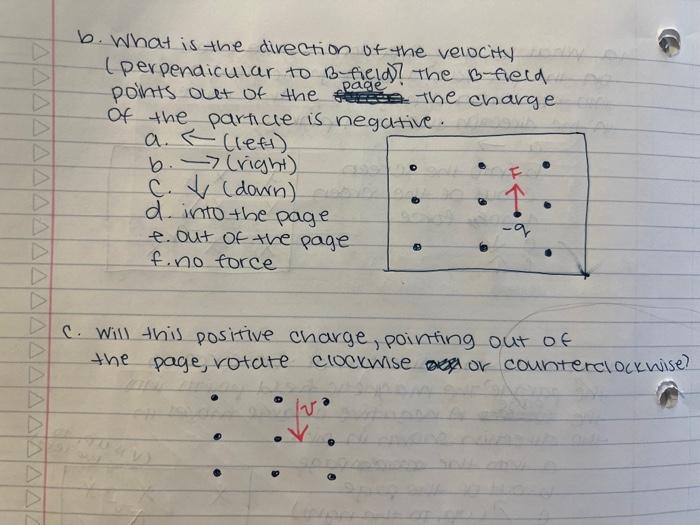 b. What is the direction of the velocity
(perpendicular to B-field)? The B-field
points out of the page. The charge
of the particle is negative.
a. ← (left)
b. → (right)
c. ↓ (down)
d. into the page
e. out of the page
f. no force
F
-q
c. Will this positive charge, pointing out of
the page, rotate clockwise or counterclockwise?
v